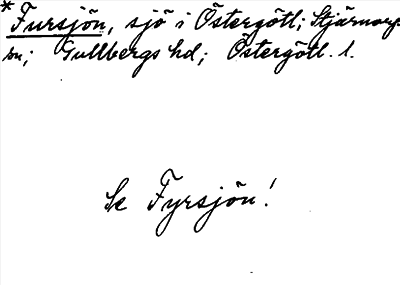 * Fursjön, sjö i Östergötl; Stjärnorps
sn; Gullbergs hd; Östergötl. l.
Se Fyrsjön!